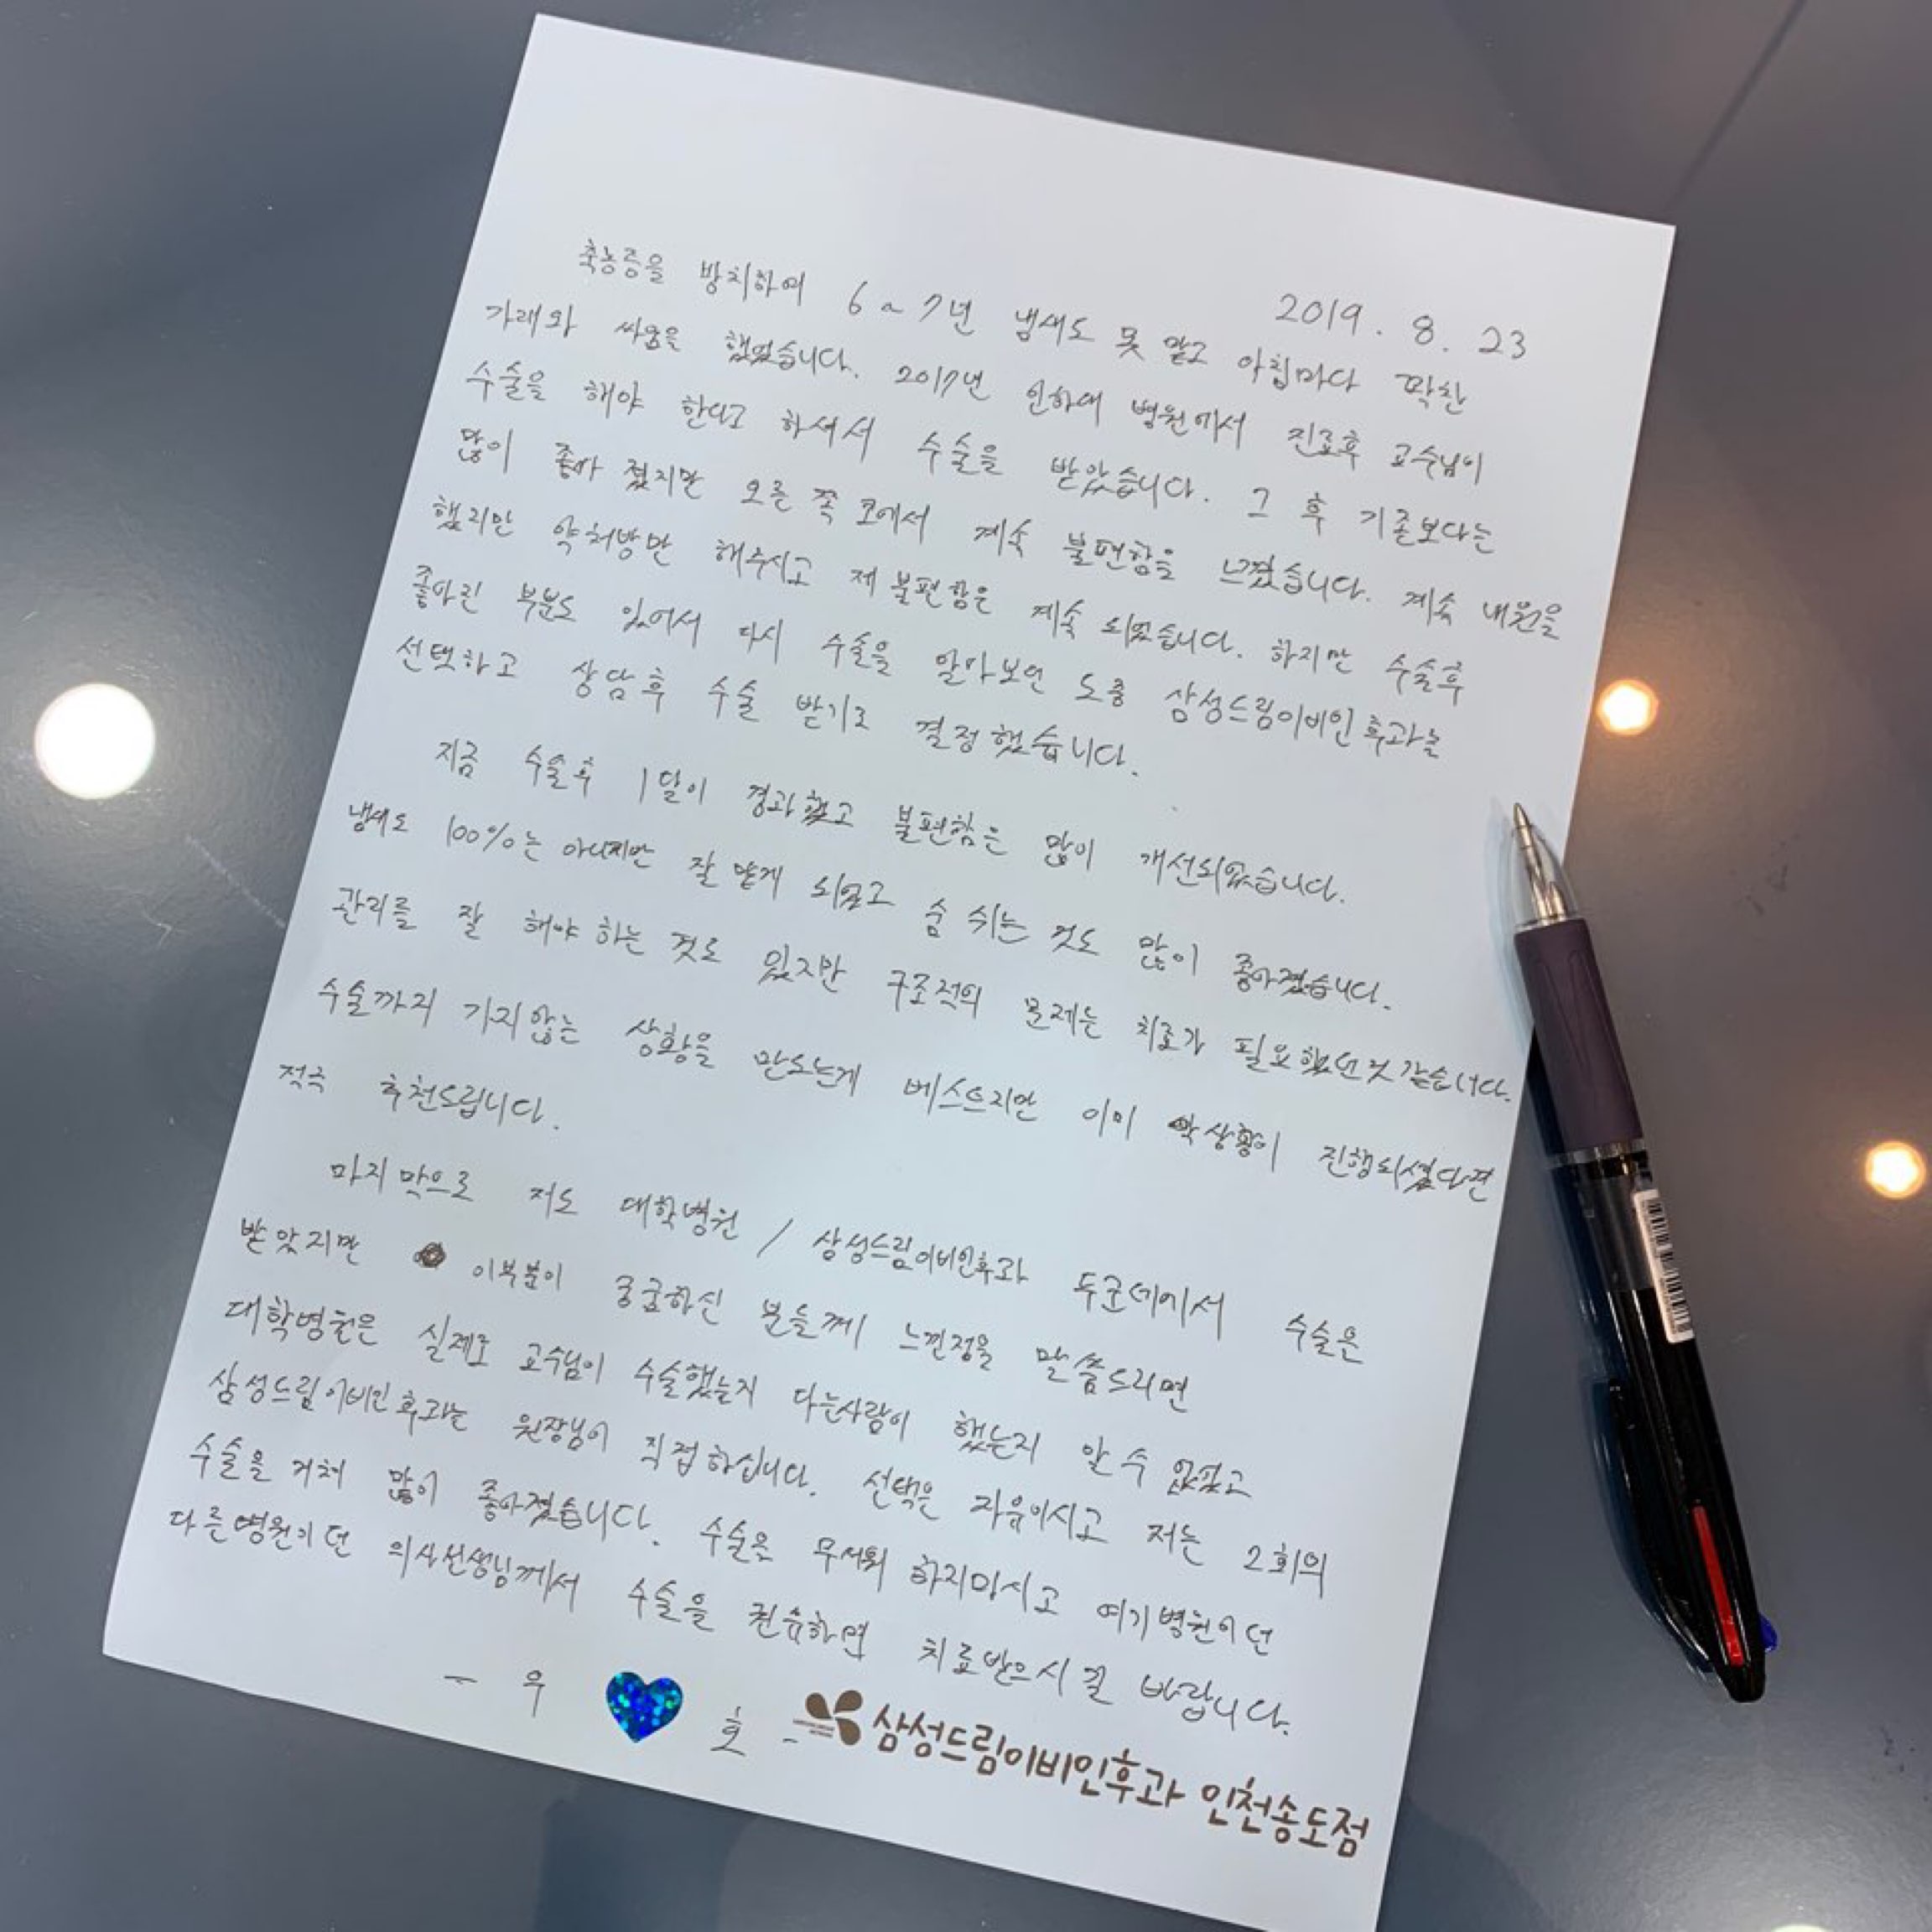 2019. 8. 23
축농증을 방치하여 6~7년 냄새도 못 맡고 아침마다 꽉찬
가래와 싸움을 했었습니다. 2017년 인하대 병원에서 진료후 교수님이
수술을 해야 한다고 하셔서 수술을 받았습니다. 그 후 기존보다는
많이 좋아 졌지만 오른 쪽 코에서 계속 불편함을 느꼈습니다. 계속 내원을
했지만 약처방만 해주시고 제 불편함은 계속 되었습니다. 하지만 수술후
좋아진 부분도 있어서 다시 수술을 알아보던 도중 삼성드림이비인후과를
선택하고 상담후 수술 받기로 결정했습니다.
지금 수술후 1달이 경과했고 불편함은 많이 개선되었습니다.
냄새도 100%는 아니지만 잘 맡게 되었고 숨 쉬는 것도 많이 좋아졌습니다.
관리를 잘 해야 하는 것도 있지만 구조적의 문제는 치료가 필요했던것 같습니다.
수술까지 가지않는 상황을 만드는게 베스트지만 이미 상황이 진행되셨다면
적극 추천드립니다.
마지막으로 저도 대학병원 / 삼성드림이비인후과 두군데에서 수술은
받았지만 이부분이 궁금하신 분들께 느낀점을 말씀드리면
대학병원은 실제로 교수님이 수술했는지 다른사람이 했는지 알 수 없었고
삼성드림이비인후과는 원장님이 직접하십니다. 선택은 자유이시고 저는 2회의
수술을 거쳐 많이 좋아졌습니다. 수술을 무서워 하지마시고 여기병원이던
다른병원이던 의사선생님께서 수술을 권유하면 치료받으시길 바랍니다.
- 우 호 -
삼성드림이비인후과 인천송도점